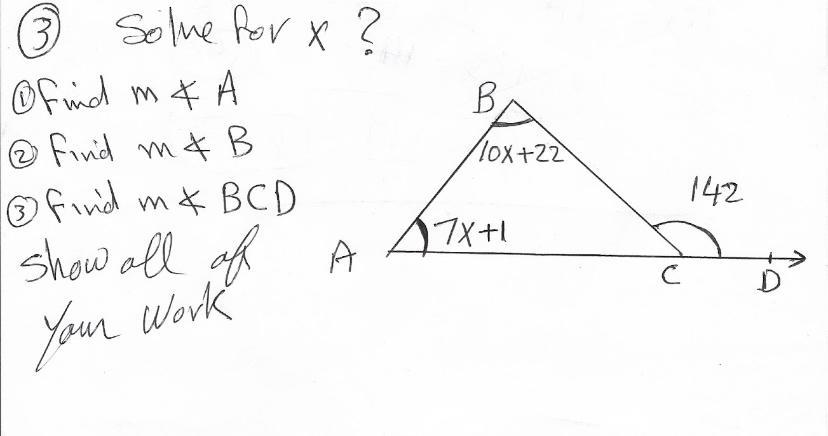 ③ Solve for x ?
① find m ∡ A
② find m ∡ B
③ find m ∡ BCD
show all of
your work
B
10x+22
142
7x+1
A
C
D